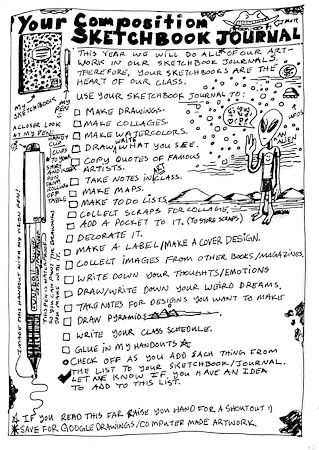 Your Composition
SKETCHBOOK JOURNAL
THIS YEAR WE WILL DO ALL OF OUR ART-
WORK IN OUR SKETCHBOOK JOURNALS.
THEREFORE, YOUR SKETCHBOOKS ARE THE
HEART OF OUR CLASS.
USE YOUR SKETCHBOOK JOURNAL TO:
MY SKETCHBOOK
MY PEN
A CLOSER LOOK
AT MY PEN:
MAKE DRAWINGS.
MAKE COLLAGES.
MAKE WATERCOLORS.
DRAW/WRITE WHAT YOU SEE.
COPY QUOTES OF FAMOUS
ARTISTS.
TAKE NOTES IN ART CLASS.
MAKE MAPS.
MAKE TO DO LISTS.
COLLECT SCRAPS FOR COLLAGE.
ADD A POCKET TO IT. (TO STORE SCRAPS)
DECORATE IT.
MAKE A LABEL/MAKE A COVER DESIGN.
COLLECT IMAGES FROM OTHER BOOKS/MAGAZINES.
WRITE DOWN YOUR THOUGHTS/EMOTIONS
DRAW/WRITE DOWN YOUR WEIRD DREAMS.
TAKE NOTES FOR DESIGNS YOU WANT TO MAKE
DRAW PYRAMIDS
WRITE YOUR CLASS SCHEDULE.
GLUE IN MY HANDOUTS
CHECK OFF AS YOU ADD EACH THING FROM
THE LIST TO YOUR SKETCHBOOK/JOURNAL.
LET ME KNOW IF YOU HAVE AN IDEA
TO ADD TO THIS LIST.
UFOS
AN
ALIEN
I MAKE THIS HANDOUT WITH MY VISION PEN!
THIS PEN IS WATERPROOF
SO YOU CAN PAINT THE DRAWINGS
YOU MAKE WITH IT.
IF YOU READ THIS FAR RAISE YOU HAND FOR A SHOUTOUT :)
SAVE FOR GOOGLE DRAWINGS/COMPUTER MADE ARTWORK.